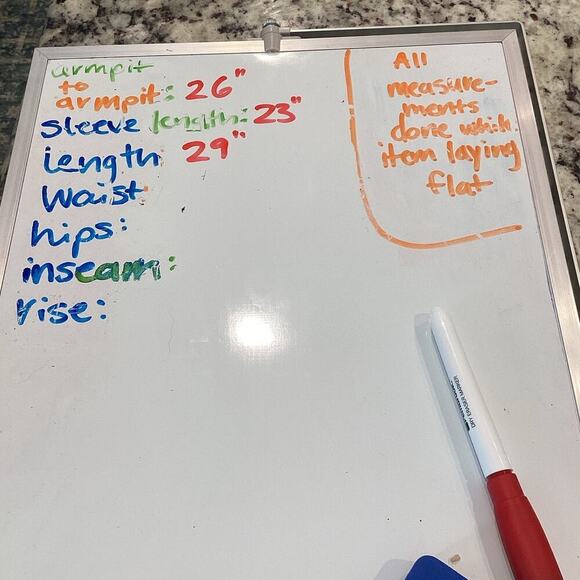 armpit
to
armpit: 26"
Sleeve length: 23"
Length 29"
Waist
hips:
inseam:
rise:
All
measure-
ments
done which
item laying
flat
DRY ERASER MARKER